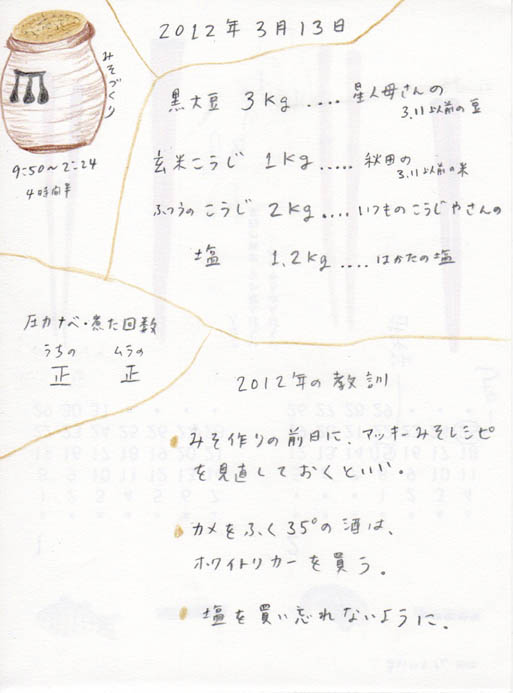 2012年3月13日
みそづくり
9:50〜2:24
4時間半
黒大豆 3kg .... 星人母さんの
3.11以前の豆
玄米こうじ 1kg ..... 秋田の
3.11以前の米
ふつうのこうじ 2kg .... いつものこうじやさんの
塩 1.2kg .... はかたの塩
圧力ナベ・煮た回数
うちの ムラの
正 正
2012年の教訓
みそ作りの前日に、マッキーみそレシピ
を見直しておくといい。
カメをふく35°の酒は、
ホワイトリカーを買う。
塩を買い忘れないように。